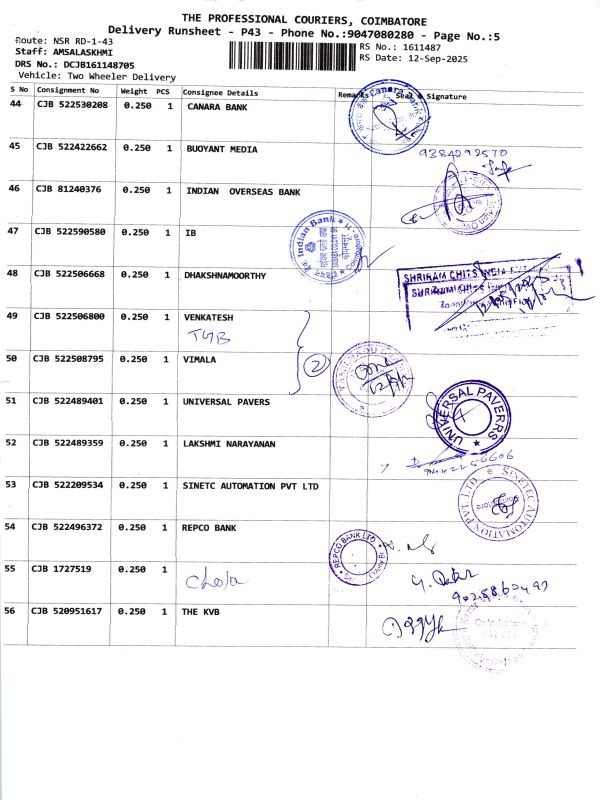 THE PROFESSIONAL COURIERS, COIMBATORE
Delivery Runsheet - P43 - Phone No.:9047080280 - Page No.:5
Route: NSR RD-1-43
RS No.: 1611487
Staff: AMSALASKHMI
RS Date: 12-Sep-2025
DRS No.: DCJB161148705
Vehicle: Two Wheeler Delivery
S No Consignment No Weight PCS Consignee Details Remarks Seal & Signature
44 CJB 522530208 0.250 1 CANARA BANK
Canara Bank
45 CJB 522422662 0.250 1 BUOYANT MEDIA
9384292570
46 CJB 81240376 0.250 1 INDIAN OVERSEAS BANK
47 CJB 522590580 0.250 1 IB
Indian Bank
48 CJB 522506668 0.250 1 DHAKSHNAMOORTHY
SHRIRAM CHITS INDIA
SHRIRAM CHITS
49 CJB 522506800 0.250 1 VENKATESH
TGB
50 CJB 522508795 0.250 1 VIMALA
2
51 CJB 522489401 0.250 1 UNIVERSAL PAVERS
UNIVERSAL PAVERRS
52 CJB 522489359 0.250 1 LAKSHMI NARAYANAN
53 CJB 522209534 0.250 1 SINETC AUTOMATION PVT LTD
SINETEC AUTOMATION PVT. LTD.
54 CJB 522496372 0.250 1 REPCO BANK
REPCO BANK LTD
55 CJB 1727519 0.250 1
Chola
56 CJB 520951617 0.250 1 THE KVB